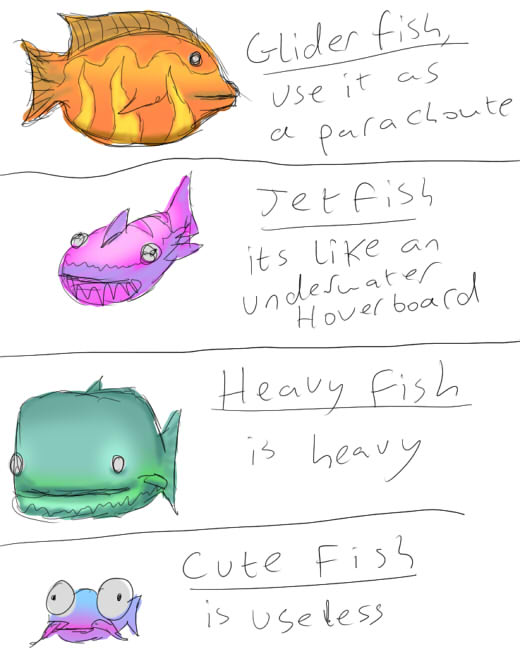 Glider fish,
use it as
a parachoute
Jetfish
its like an
underwater
Hoverboard
Heavy Fish
is heavy
Cute Fish
is useless